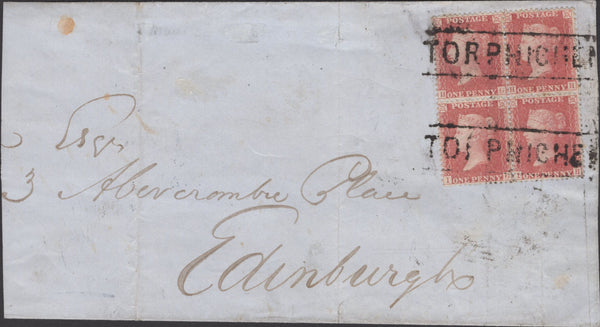 POSTAGE POSTAGE
TORPHICHEN
ONE PENNY ONE PENNY
POSTAGE POSTAGE
TORPHICHEN
ONE PENNY ONE PENNY
Esqr
3 Abercrombie Place
Edinburgh